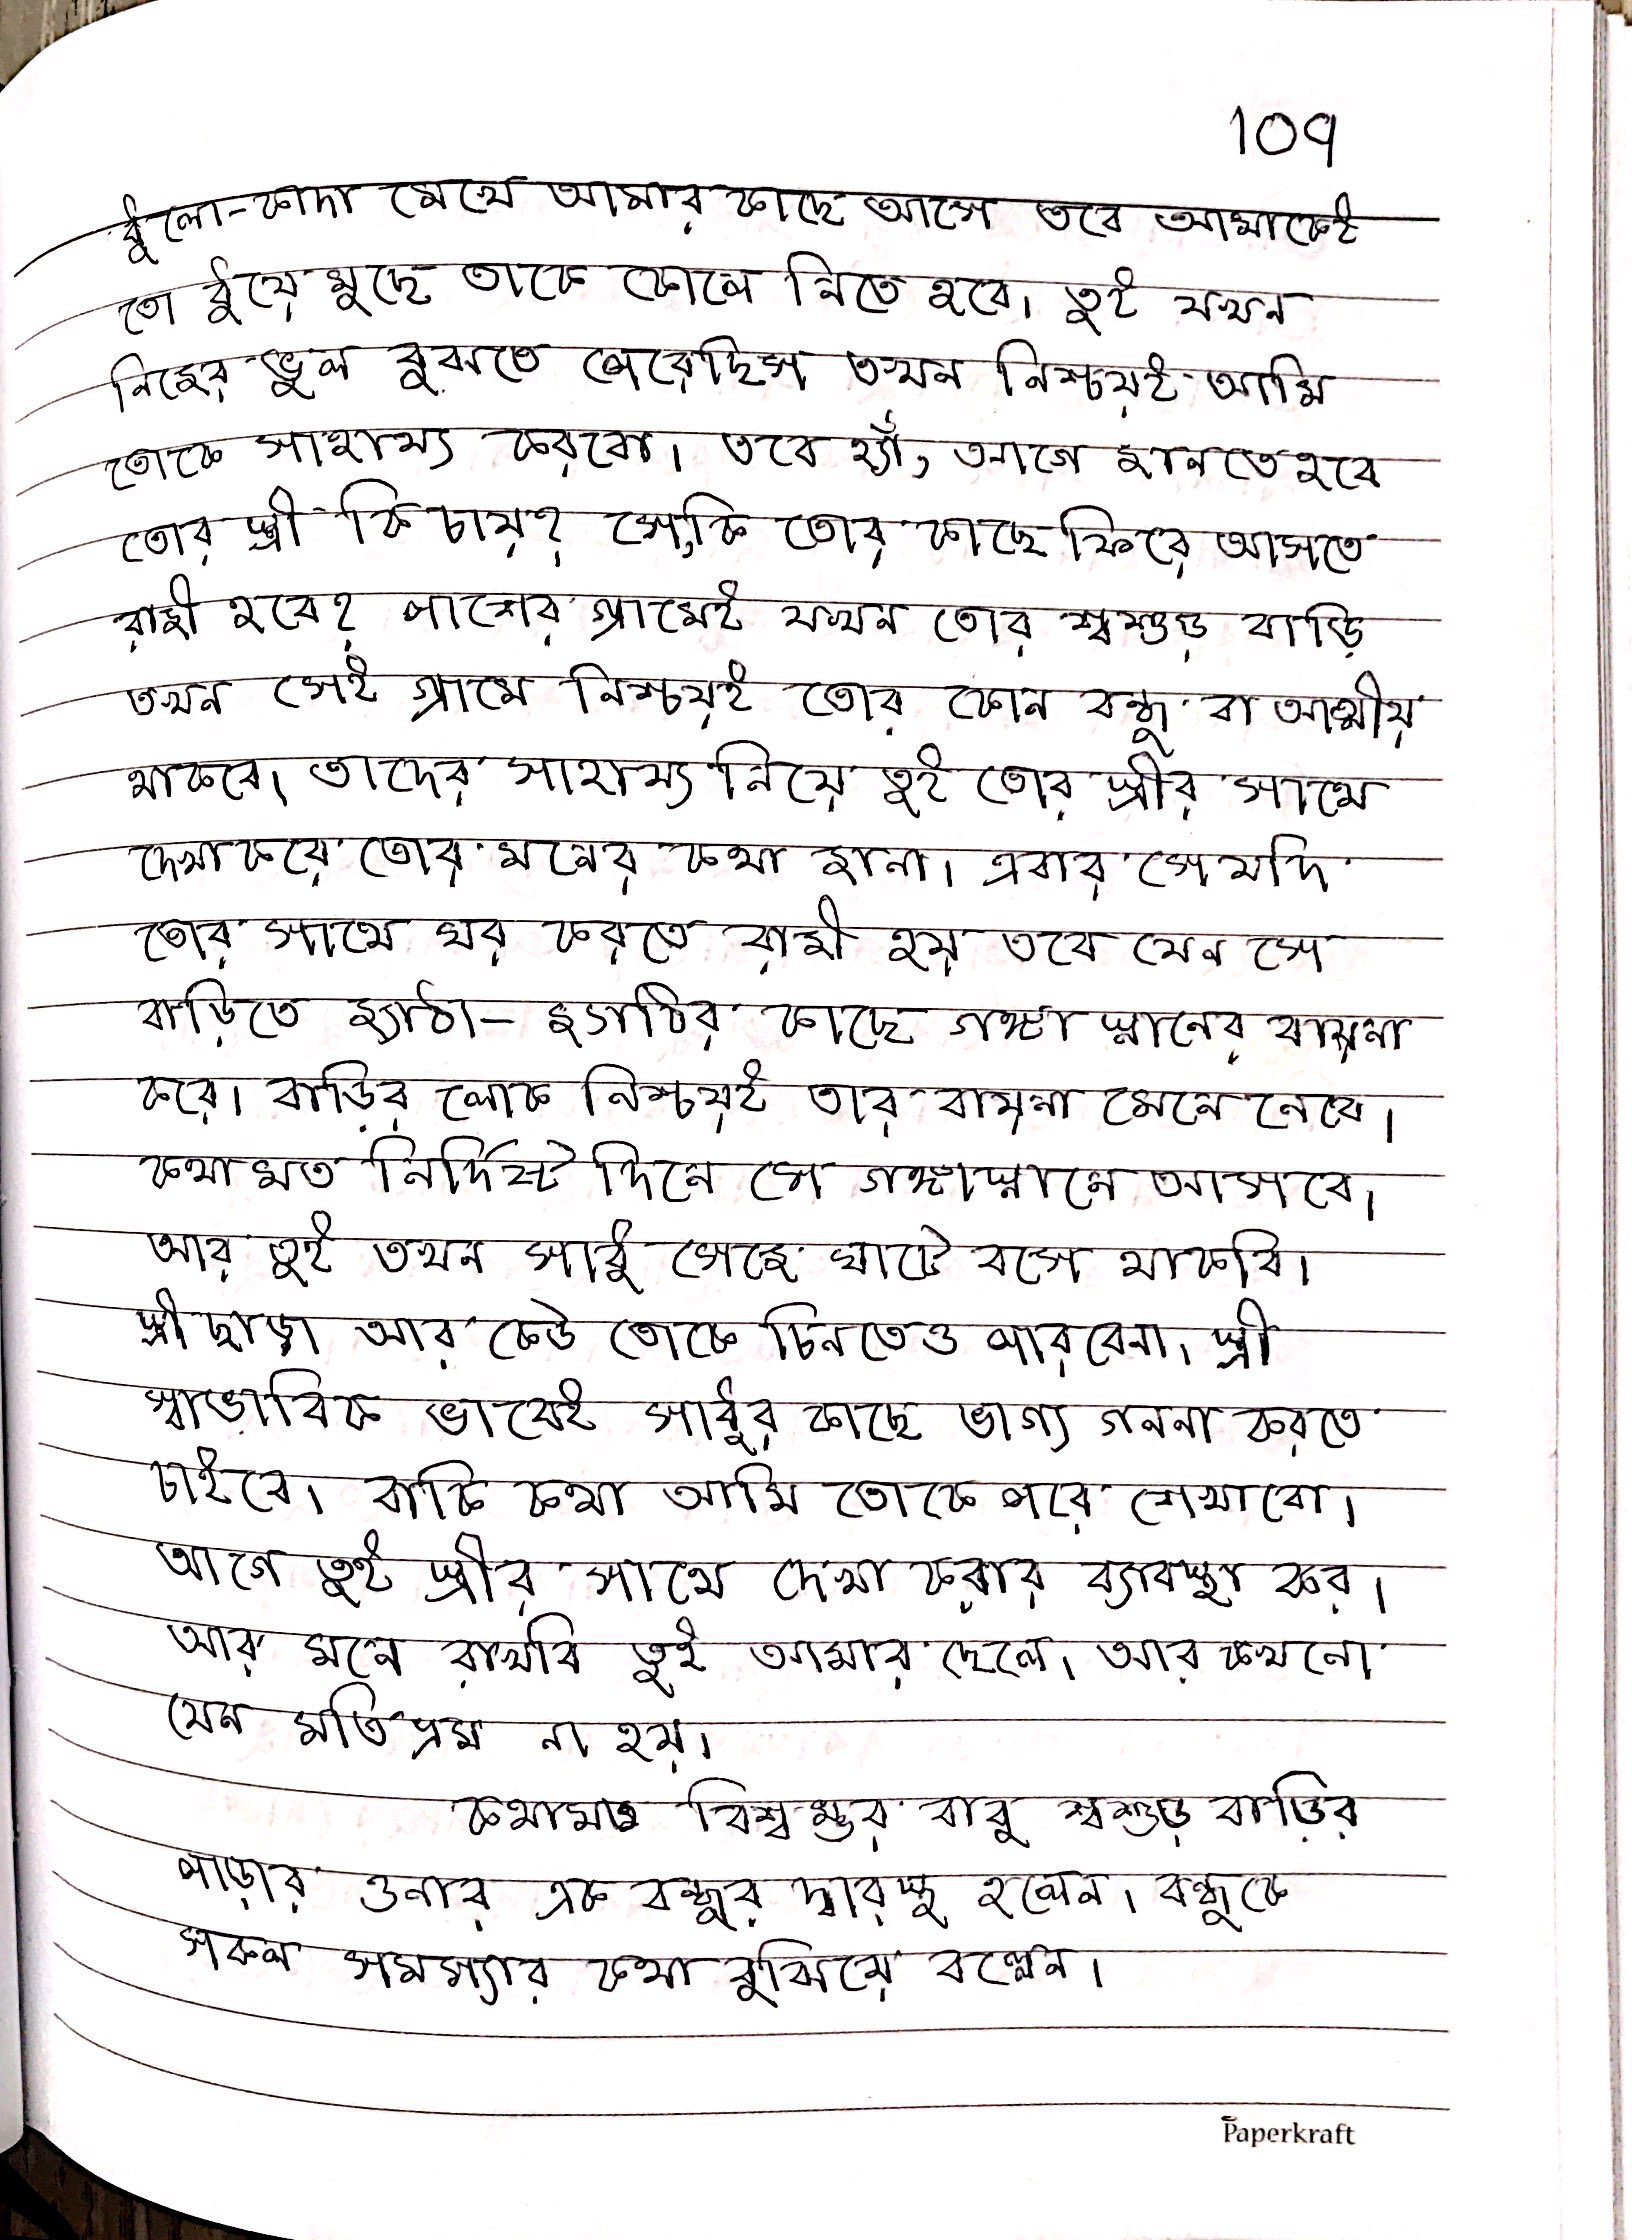 109
ধুলো-কাদা মেখে আমার কাছে আসে তবে আমাকেই
তো ধুয়ে মুছে তাকে কোলে নিতে হবে। তুই যখন
নিজের ভুল বুঝতে পেরেছিস তখন নিশ্চয়ই আমি
তোকে সাহায্য করবো। তবে হ্যাঁ, আগে জানতে হবে
তোর স্ত্রী কি চায়? সে,কি তোর কাছে ফিরে আসতে
রাজী হবে? পাশের গ্রামেই যখন তোর শ্বশুড় বাড়ি
তখন সেই গ্রামে নিশ্চয়ই তোর কোন বন্ধু বা আত্মীয়
থাকবে। তাদের সাহায্য নিয়ে তুই তোর স্ত্রীর সাথে
দেখা করে তোর মনের কথা জানা। এবার সে যদি
তোর সাথে ঘর করতে রাজী হয় তবে যেন সে
বাড়িতে জ্যাঠা- জ্যাঠির কাছে গঙ্গা স্নানের বায়না
করে। বাড়ির লোক নিশ্চয়ই তার বায়না মেনে নেবে।
কথা মত নির্দিস্ট দিনে সে গঙ্গাস্নানে আসবে।
আর তুই তখন সাধু সেজে ঘাটে বসে থাকবি।
স্ত্রী ছাড়া আর কেউ তোকে চিনতেও পারবেনা। স্ত্রী
স্বাভাবিক ভাবেই সাধুর কাছে ভাগ্য গননা করতে
চাইবে। বাকি কথা আমি তোকে পরে শেখাবো।
আগে তুই স্ত্রীর সাথে দেখা করার ব্যাবস্থা কর।
আর মনে রাখবি তুই আমার ছেলে। আর কখনো
যেন মতি ভ্রম না হয়।
কথামত বিশ্বম্ভর বাবু শ্বশুড় বাড়ির
পাড়ার ওনার এক বন্ধুর দ্বারস্থ হলেন। বন্ধুকে
সকল সমস্যার কথা বুঝিয়ে বল্লেন।
Paperkraft